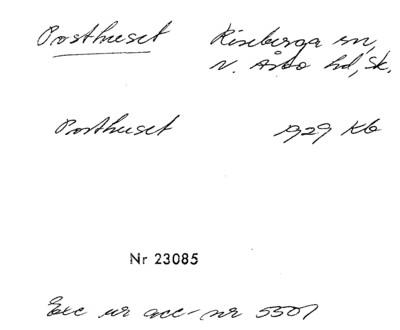 Posthuset Riseberga sn,
N. Åsbo hd, Sk.
Posthuset 1929 Kb
Nr 23085
Exc ur acc-nr 5501